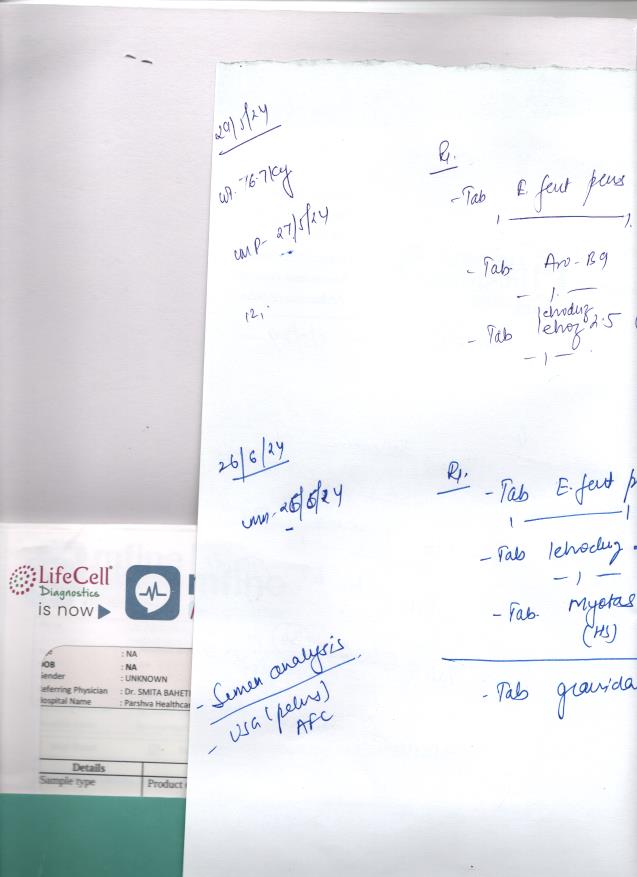 29/5/24
Wt. 76.7Kg
LMP- 27/5/24
12,
Rx.
- Tab E. fert plus
1 1.
- Tab. Aro-B9
- 1. -
- Tab letroz 2.5
- 1 -
26/6/24
LMP- 26/6/24
Rx.
- Tab E. fert p
1 1
- Tab letroduz
- 1 -
- Tab. Myotas
(HS)
- Tab gravida
- Semen analysis
- USG (pelvis)
AFC
LifeCell
Diagnostics
is now
: NA
DOB : NA
Gender : UNKNOWN
Referring Physician : Dr. SMITA BAHETI
Hospital Name : Parshva Healthcar
Details
Sample type Product